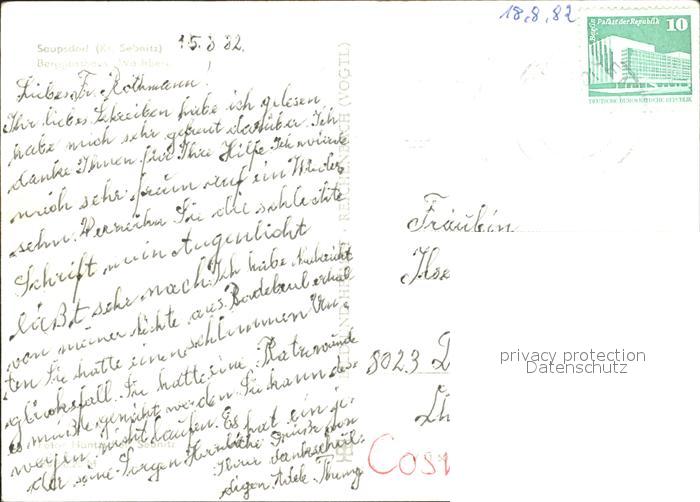 18.8.82
Berlin Palast der Republik
10
DEUTSCHE DEMOKRATISCHE REPUBLIK
Saupsdorf (Kr. Sebnitz)
15.8 82.
Liebes Fr. Rothmann!
Ihr liebes Schreiben habe ich gelesen
habe mich sehr gefreut darüber. Ich
danke Ihnen für Ihre Hilfe. Ich würde
mich sehr freun auf ein Wieder
sehn. Verzeihn Sie die schlechte
Schrift mein Augenlicht
läßt sehr nach. Ich habe Nachricht
von meiner Nichte aus Radebeul erhal
ten Sie hatte einen schlimmen Un-
glücksfall. Sie hatte eine
es mußte genäht werden. Sie kann des-
wegen nicht laufen. Es hat ein je-
der seine Sorgen. Herzliche Grüße von
Ihrer
REICHENBACH (VOGTL)
Fräulein
Ilse
8023 D
privacy protection
Datenschutz